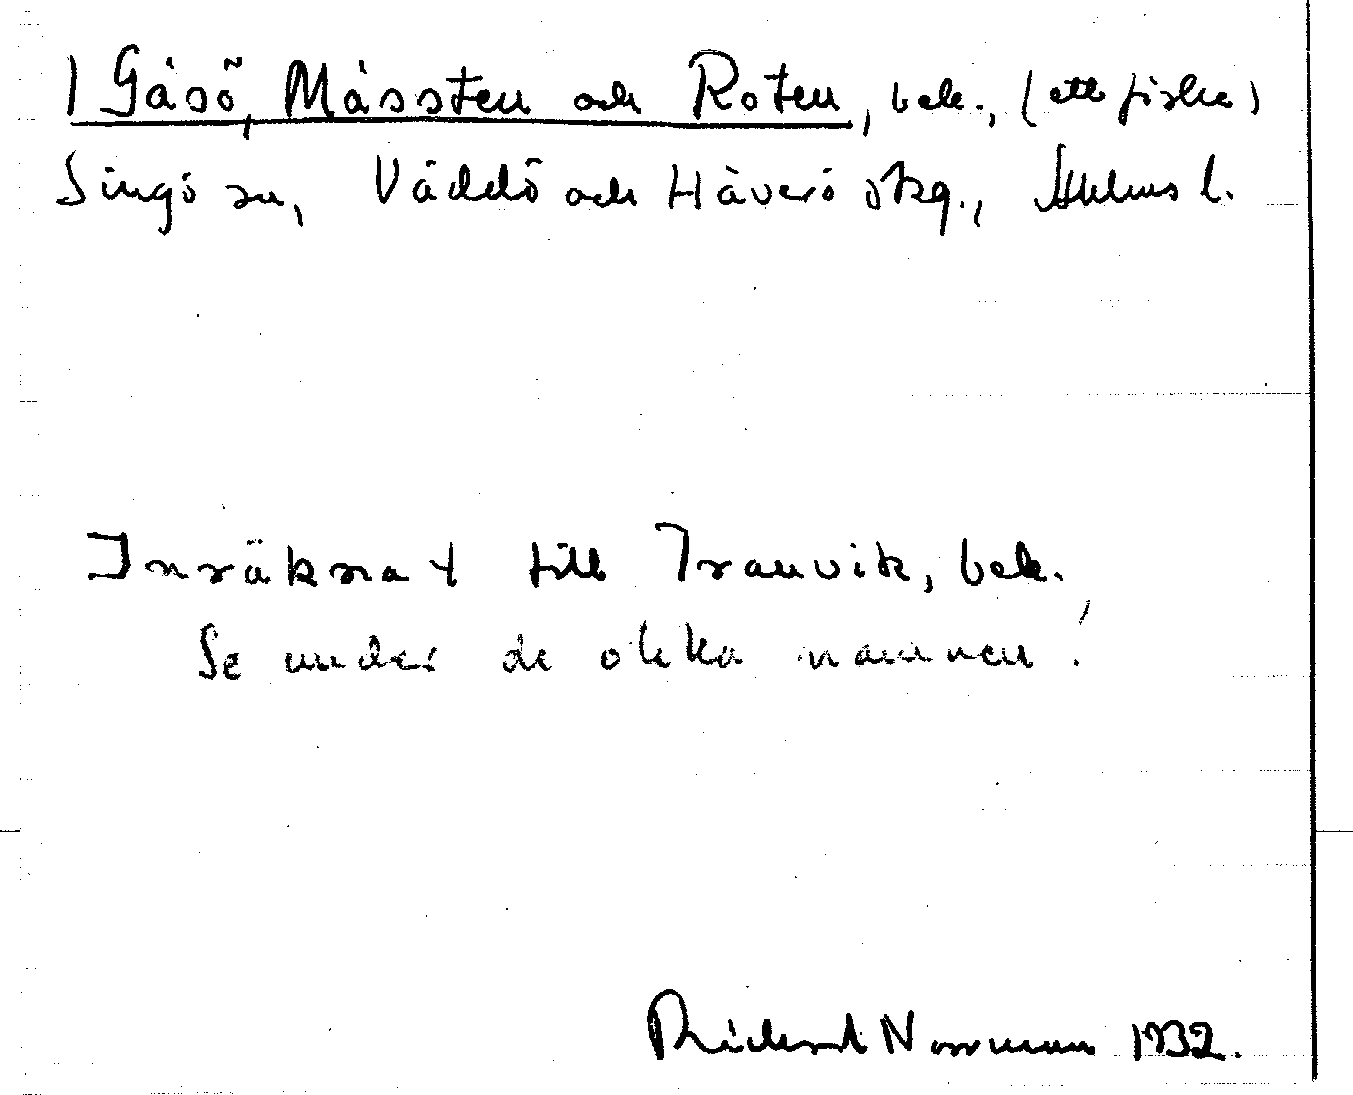 1 Gåsö, Måssten och Roten, bek., (ett fiske)
Singö sn, Väddö och Häverö skg., Sthlms l.
Inräknat till Tranvik, bek.
Se under de olika namnen!
Richard Norrman 1932.